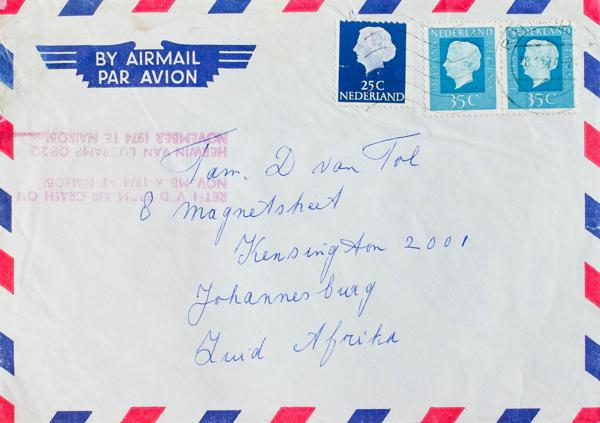 BY AIRMAIL
PAR AVION
25C
NEDERLAND
NEDERLAND
35C
NEDERLAND
35C
HERWIN VAN LUGRAMP OP 20
NOVEMBER 1974 TE NAIROBI.
CRASH ON
NOV. 1974 AT NAIROBI.
Fam. D van Tol
8 Magnetsheet
Kensington 2001
Johannesburg
Zuid Afrika